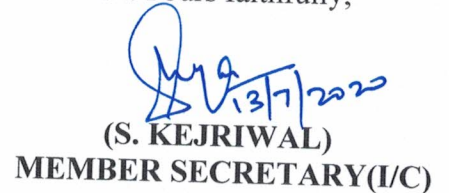 faithfully,
13/7/2020
(S. KEJRIWAL)
MEMBER SECRETARY(I/C)